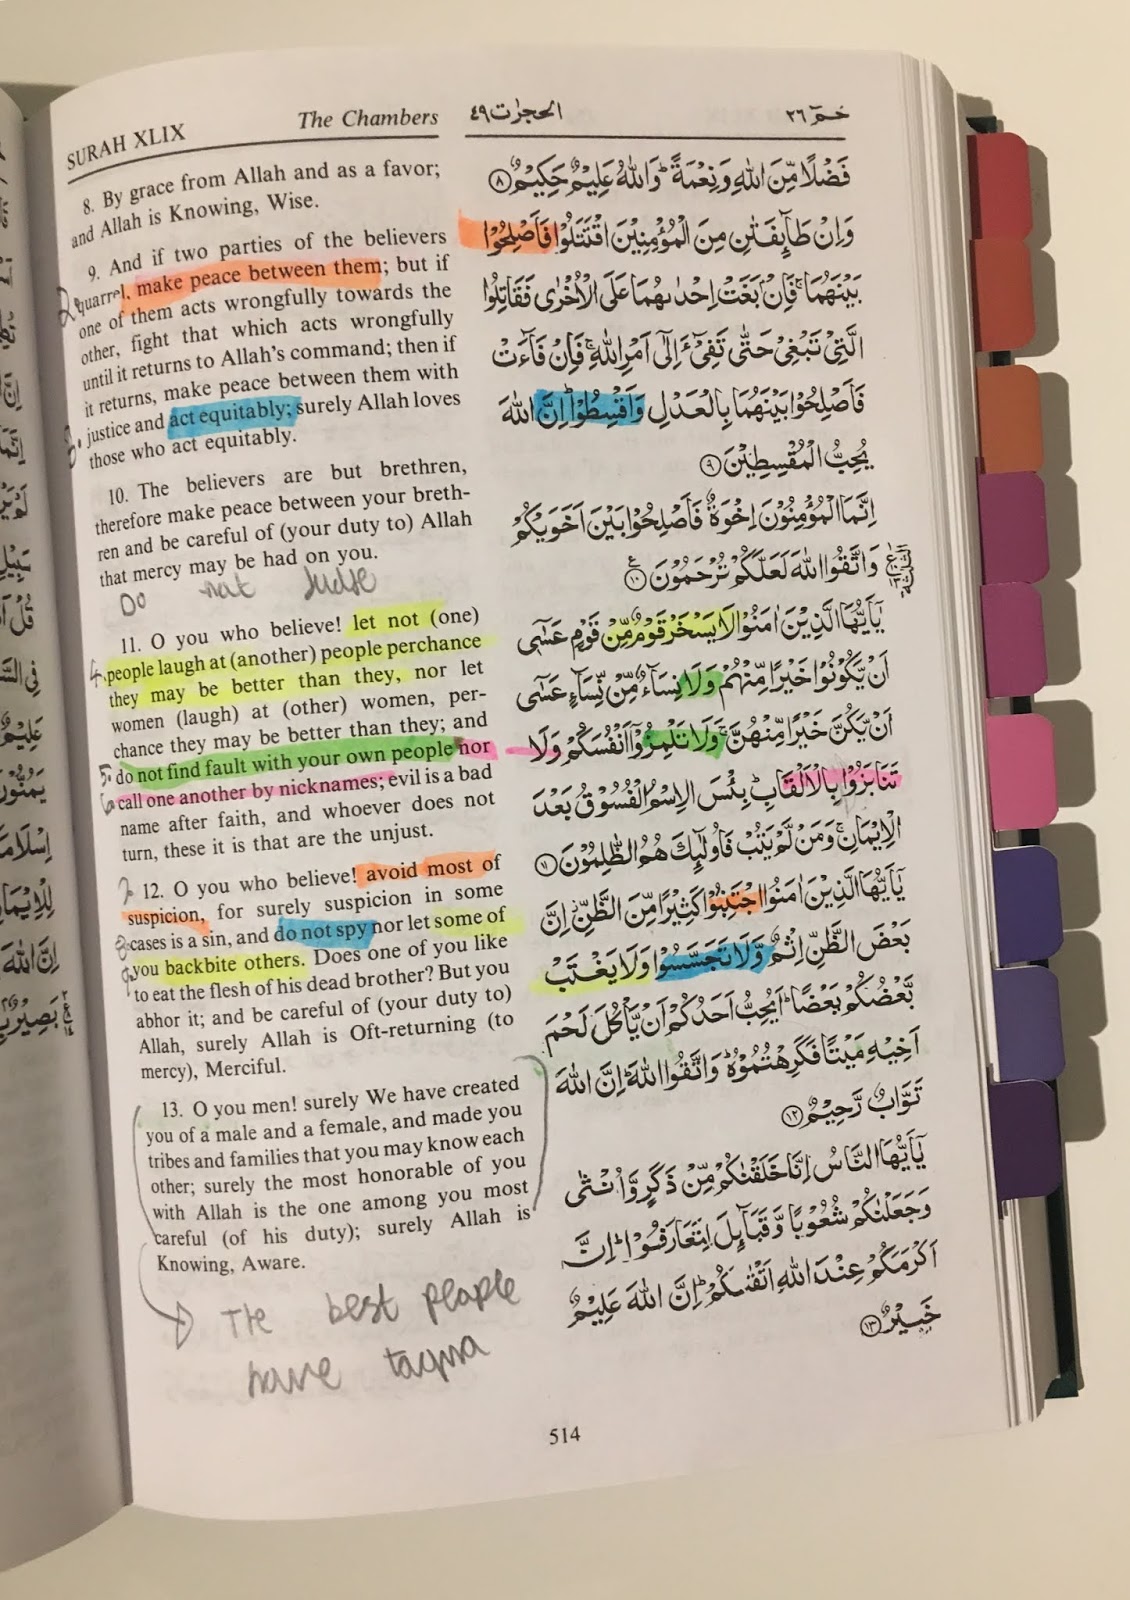 SURAH XLIX The Chambers
8. By grace from Allah and as a favor;
and Allah is Knowing, Wise.
9. And if two parties of the believers
2. quarrel, make peace between them; but if
one of them acts wrongfully towards the
other, fight that which acts wrongfully
until it returns to Allah's command; then if
it returns, make peace between them with
3. justice and act equitably; surely Allah loves
those who act equitably.
10. The believers are but brethren,
therefore make peace between your breth-
ren and be careful of (your duty to) Allah
that mercy may be had on you.
Do not Judge
11. O you who believe! let not (one)
4. people laugh at (another) people perchance
they may be better than they, nor let
women (laugh) at (other) women, per-
chance they may be better than they; and
5. do not find fault with your own people nor
6 call one another by nicknames; evil is a bad
name after faith, and whoever does not
turn, these it is that are the unjust.
7. 12. O you who believe! avoid most of
suspicion, for surely suspicion in some
8. cases is a sin, and do not spy nor let some of
9. you backbite others. Does one of you like
to eat the flesh of his dead brother? But you
abhor it; and be careful of (your duty to)
Allah, surely Allah is Oft-returning (to
mercy), Merciful.
13. O you men! surely We have created
you of a male and a female, and made you
tribes and families that you may know each
other; surely the most honorable of you
with Allah is the one among you most
careful (of his duty); surely Allah is
Knowing, Aware.
The best people
have taqwa
حٰمٓ ٢٦ الحجرٰت ٤٩
فَضْلًا مِّنَ اللّٰهِ وَنِعْمَةً ؕ وَاللّٰهُ عَلِيْمٌ حَكِيْمٌ ۝٨
وَاِنْ طَآىِٕفَتٰنِ مِنَ الْمُؤْمِنِيْنَ اقْتَتَلُوْا فَاَصْلِحُوْا
بَيْنَهُمَا ۚ فَاِنْۢ بَغَتْ اِحْدٰىهُمَا عَلَى الْاُخْرٰى فَقَاتِلُوا
الَّتِيْ تَبْغِيْ حَتّٰى تَفِيْٓءَ اِلٰٓى اَمْرِ اللّٰهِ ۚ فَاِنْ فَآءَتْ
فَاَصْلِحُوْا بَيْنَهُمَا بِالْعَدْلِ وَاَقْسِطُوْا ؕ اِنَّ اللّٰهَ
يُحِبُّ الْمُقْسِطِيْنَ ۝٩
اِنَّمَا الْمُؤْمِنُوْنَ اِخْوَةٌ فَاَصْلِحُوْا بَيْنَ اَخَوَيْكُمْ
وَاتَّقُوا اللّٰهَ لَعَلَّكُمْ تُرْحَمُوْنَ ۝١٠
يٰٓاَيُّهَا الَّذِيْنَ اٰمَنُوْا لَا يَسْخَرْ قَوْمٌ مِّنْ قَوْمٍ عَسٰٓى
اَنْ يَّكُوْنُوْا خَيْرًا مِّنْهُمْ وَلَا نِسَآءٌ مِّنْ نِّسَآءٍ عَسٰٓى
اَنْ يَّكُنَّ خَيْرًا مِّنْهُنَّ ۚ وَلَا تَلْمِزُوْٓا اَنْفُسَكُمْ وَلَا
تَنَابَزُوْا بِالْاَلْقَابِ ؕ بِئْسَ الِاسْمُ الْفُسُوْقُ بَعْدَ
الْاِيْمَانِ ۚ وَمَنْ لَّمْ يَتُبْ فَاُولٰٓىِٕكَ هُمُ الظّٰلِمُوْنَ ۝١١
يٰٓاَيُّهَا الَّذِيْنَ اٰمَنُوا اجْتَنِبُوْا كَثِيْرًا مِّنَ الظَّنِّ ۫ اِنَّ
بَعْضَ الظَّنِّ اِثْمٌ وَّلَا تَجَسَّسُوْا وَلَا يَغْتَبْ
بَّعْضُكُمْ بَعْضًا ؕ اَيُحِبُّ اَحَدُكُمْ اَنْ يَّاْكُلَ لَحْمَ
اَخِيْهِ مَيْتًا فَكَرِهْتُمُوْهُ ؕ وَاتَّقُوا اللّٰهَ ؕ اِنَّ اللّٰهَ
تَوَّابٌ رَّحِيْمٌ ۝١٢
يٰٓاَيُّهَا النَّاسُ اِنَّا خَلَقْنٰكُمْ مِّنْ ذَكَرٍ وَّاُنْثٰى
وَجَعَلْنٰكُمْ شُعُوْبًا وَّقَبَآىِٕلَ لِتَعَارَفُوْا ؕ اِنَّ
اَكْرَمَكُمْ عِنْدَ اللّٰهِ اَتْقٰىكُمْ ؕ اِنَّ اللّٰهَ عَلِيْمٌ
خَبِيْرٌ ۝١٣
514